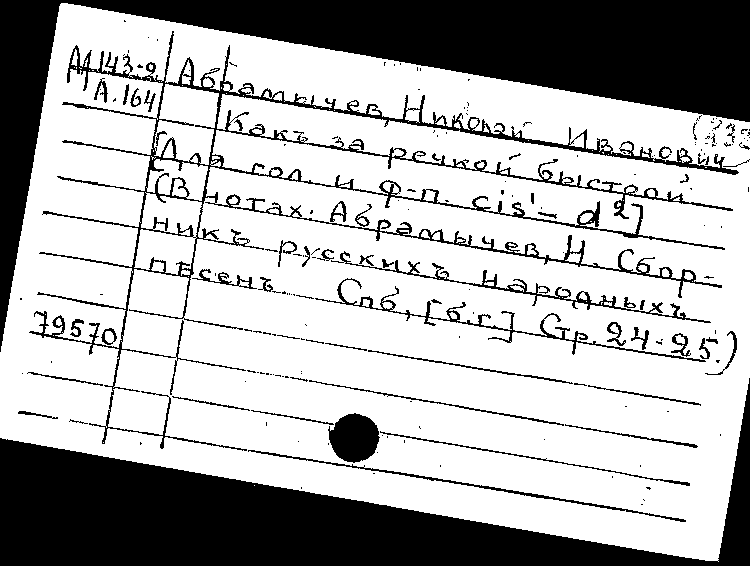 М 143-2
А.164
Абрамычев, Николай Иванович
Какъ за речкой быстрой
[Для гол. и ф-п. cis¹ – d²]
(В нотах: Абрамычев, Н. Сбор-
никъ русскихъ народныхъ
пѣсенъ. Спб, [б.г.] Стр. 24-25.)
79570